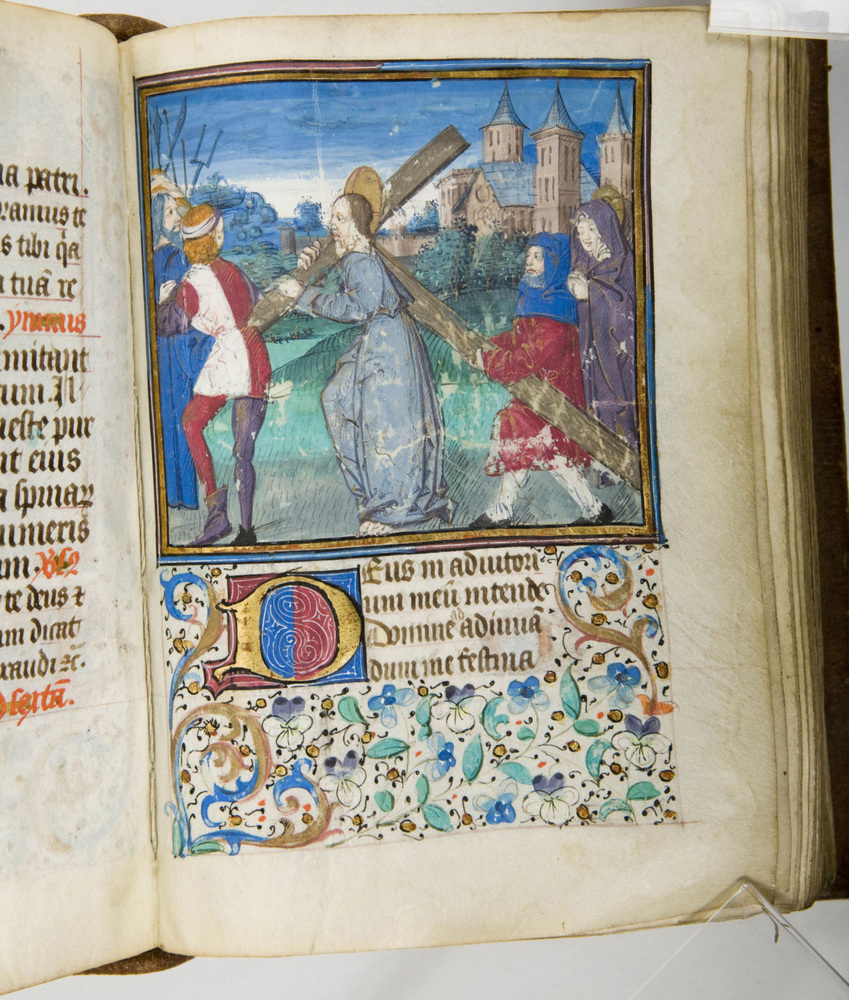 na patri.
oramus te
s tibi q̄a
a tuā re
mitant
tum.
ueste pur
nt eius
a spinarꝝ
umeris
um.
te deus ⁊
am dicat
raudi ⁊c.
Ad sextā.
Deus in adiutori
um meū intende
Domine ad adiuuā
dum me festina